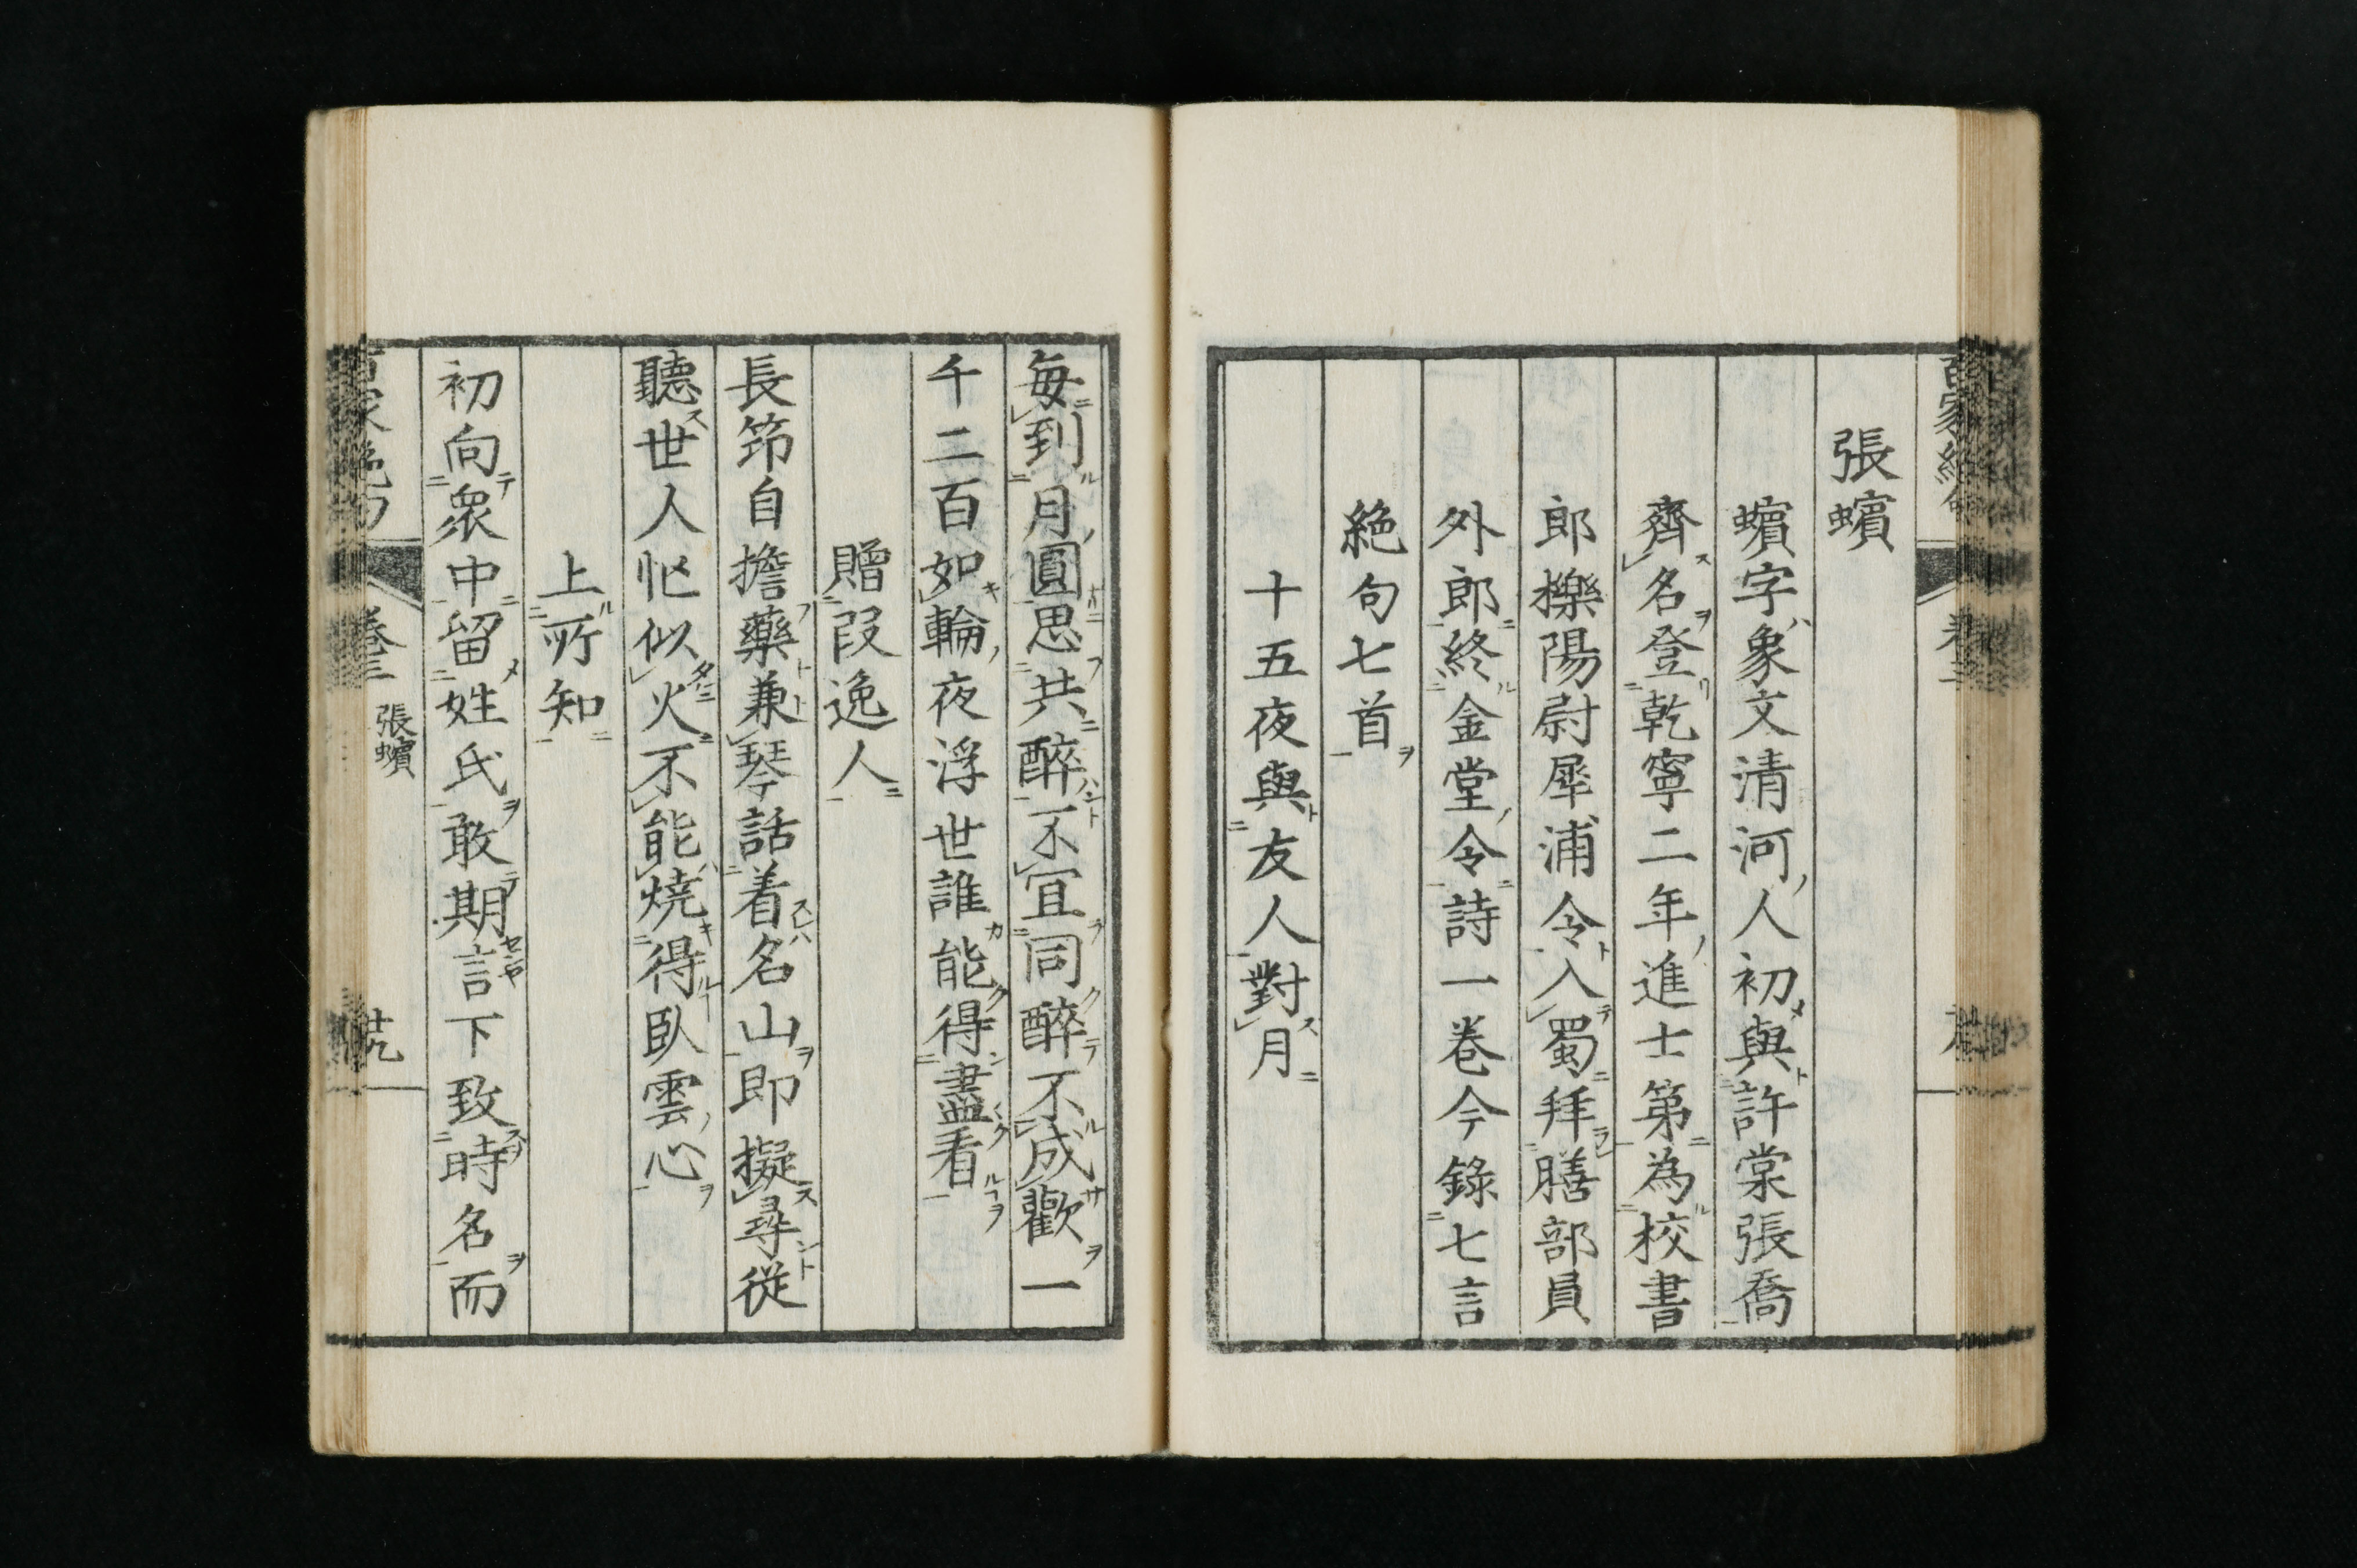 張蠙
蠙字象文清河人初與許棠張喬
齊名登乾寧二年進士第為校書
郎櫟陽尉犀浦令入蜀拜膳部員
外郎終金堂令詩一卷今錄七言
絕句七首
十五夜與友人對月
每到月圓思共醉不冝同醉不成歡一
千二百如輪夜浮世誰能得盡看
贈段逸人
長筇自擔藥兼琴話着名山即擬尋從
聽世人忙似火不能燒得臥雲心
上所知
初向衆中留姓氏敢期言下致時名而
卷三
張蠙